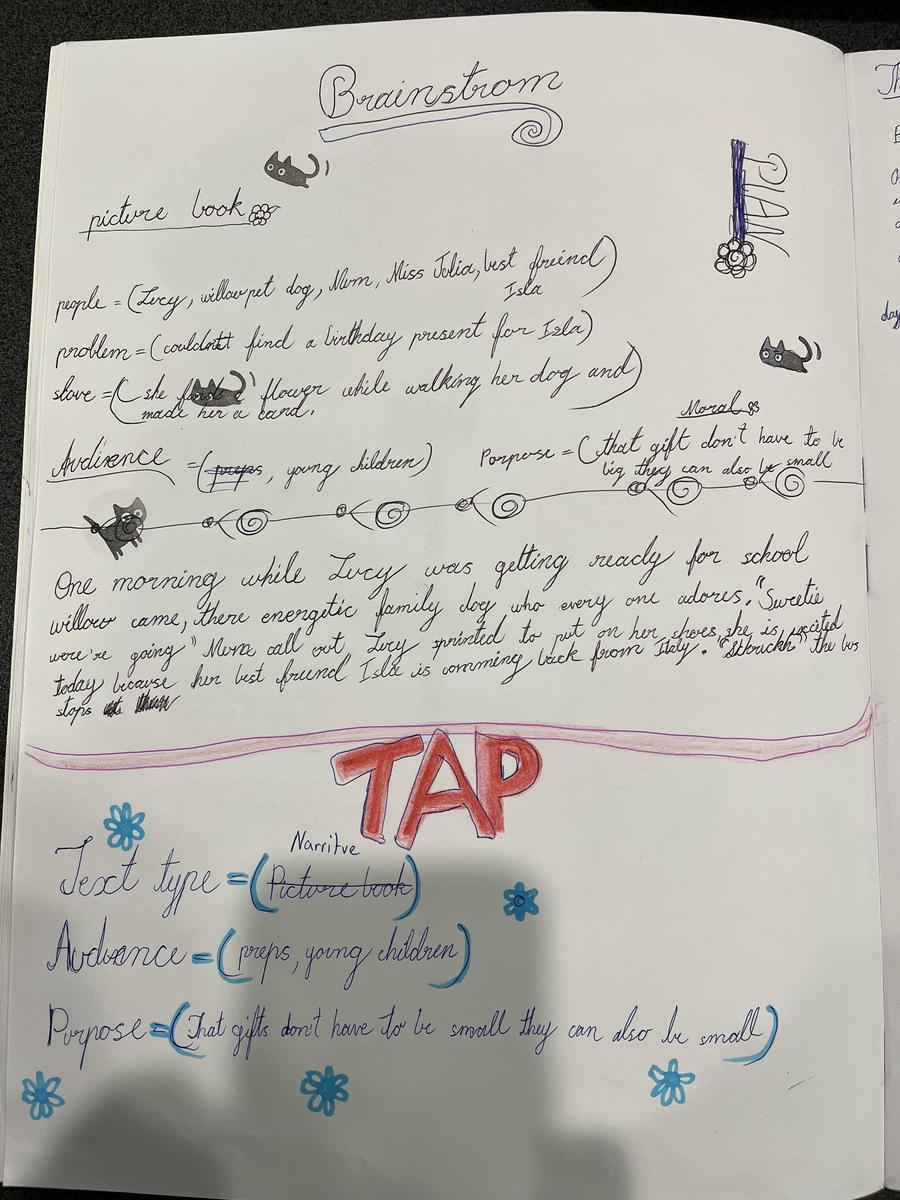 Brainstrom
PLAN
picture book
people = (Lucy, willow pet dog, Mum, Miss Julia, best freind)
Isla
problem = (couldn't find a birthday present for Isla)
slove = ( she finds a flower while walking her dog and)
made her a card.
Moral
Audixence = (preps, young children)
Porpose = ( that gift don't have to be
big they can also be small
One morning while Lucy was getting ready for school
willow came, there energetic family dog who every one adores. "Sweetie
were're going" Mum call out Lucy sprinted to put on her shoes, she is
today because her best freind Isla is comming back from Italy. "Skrichh" the bus
stops
TAP
Narritve
Texct type = (Picture book)
Audiance = (preps, young children)
Purpose = (That gifts don't have to be small they can also be small)
day